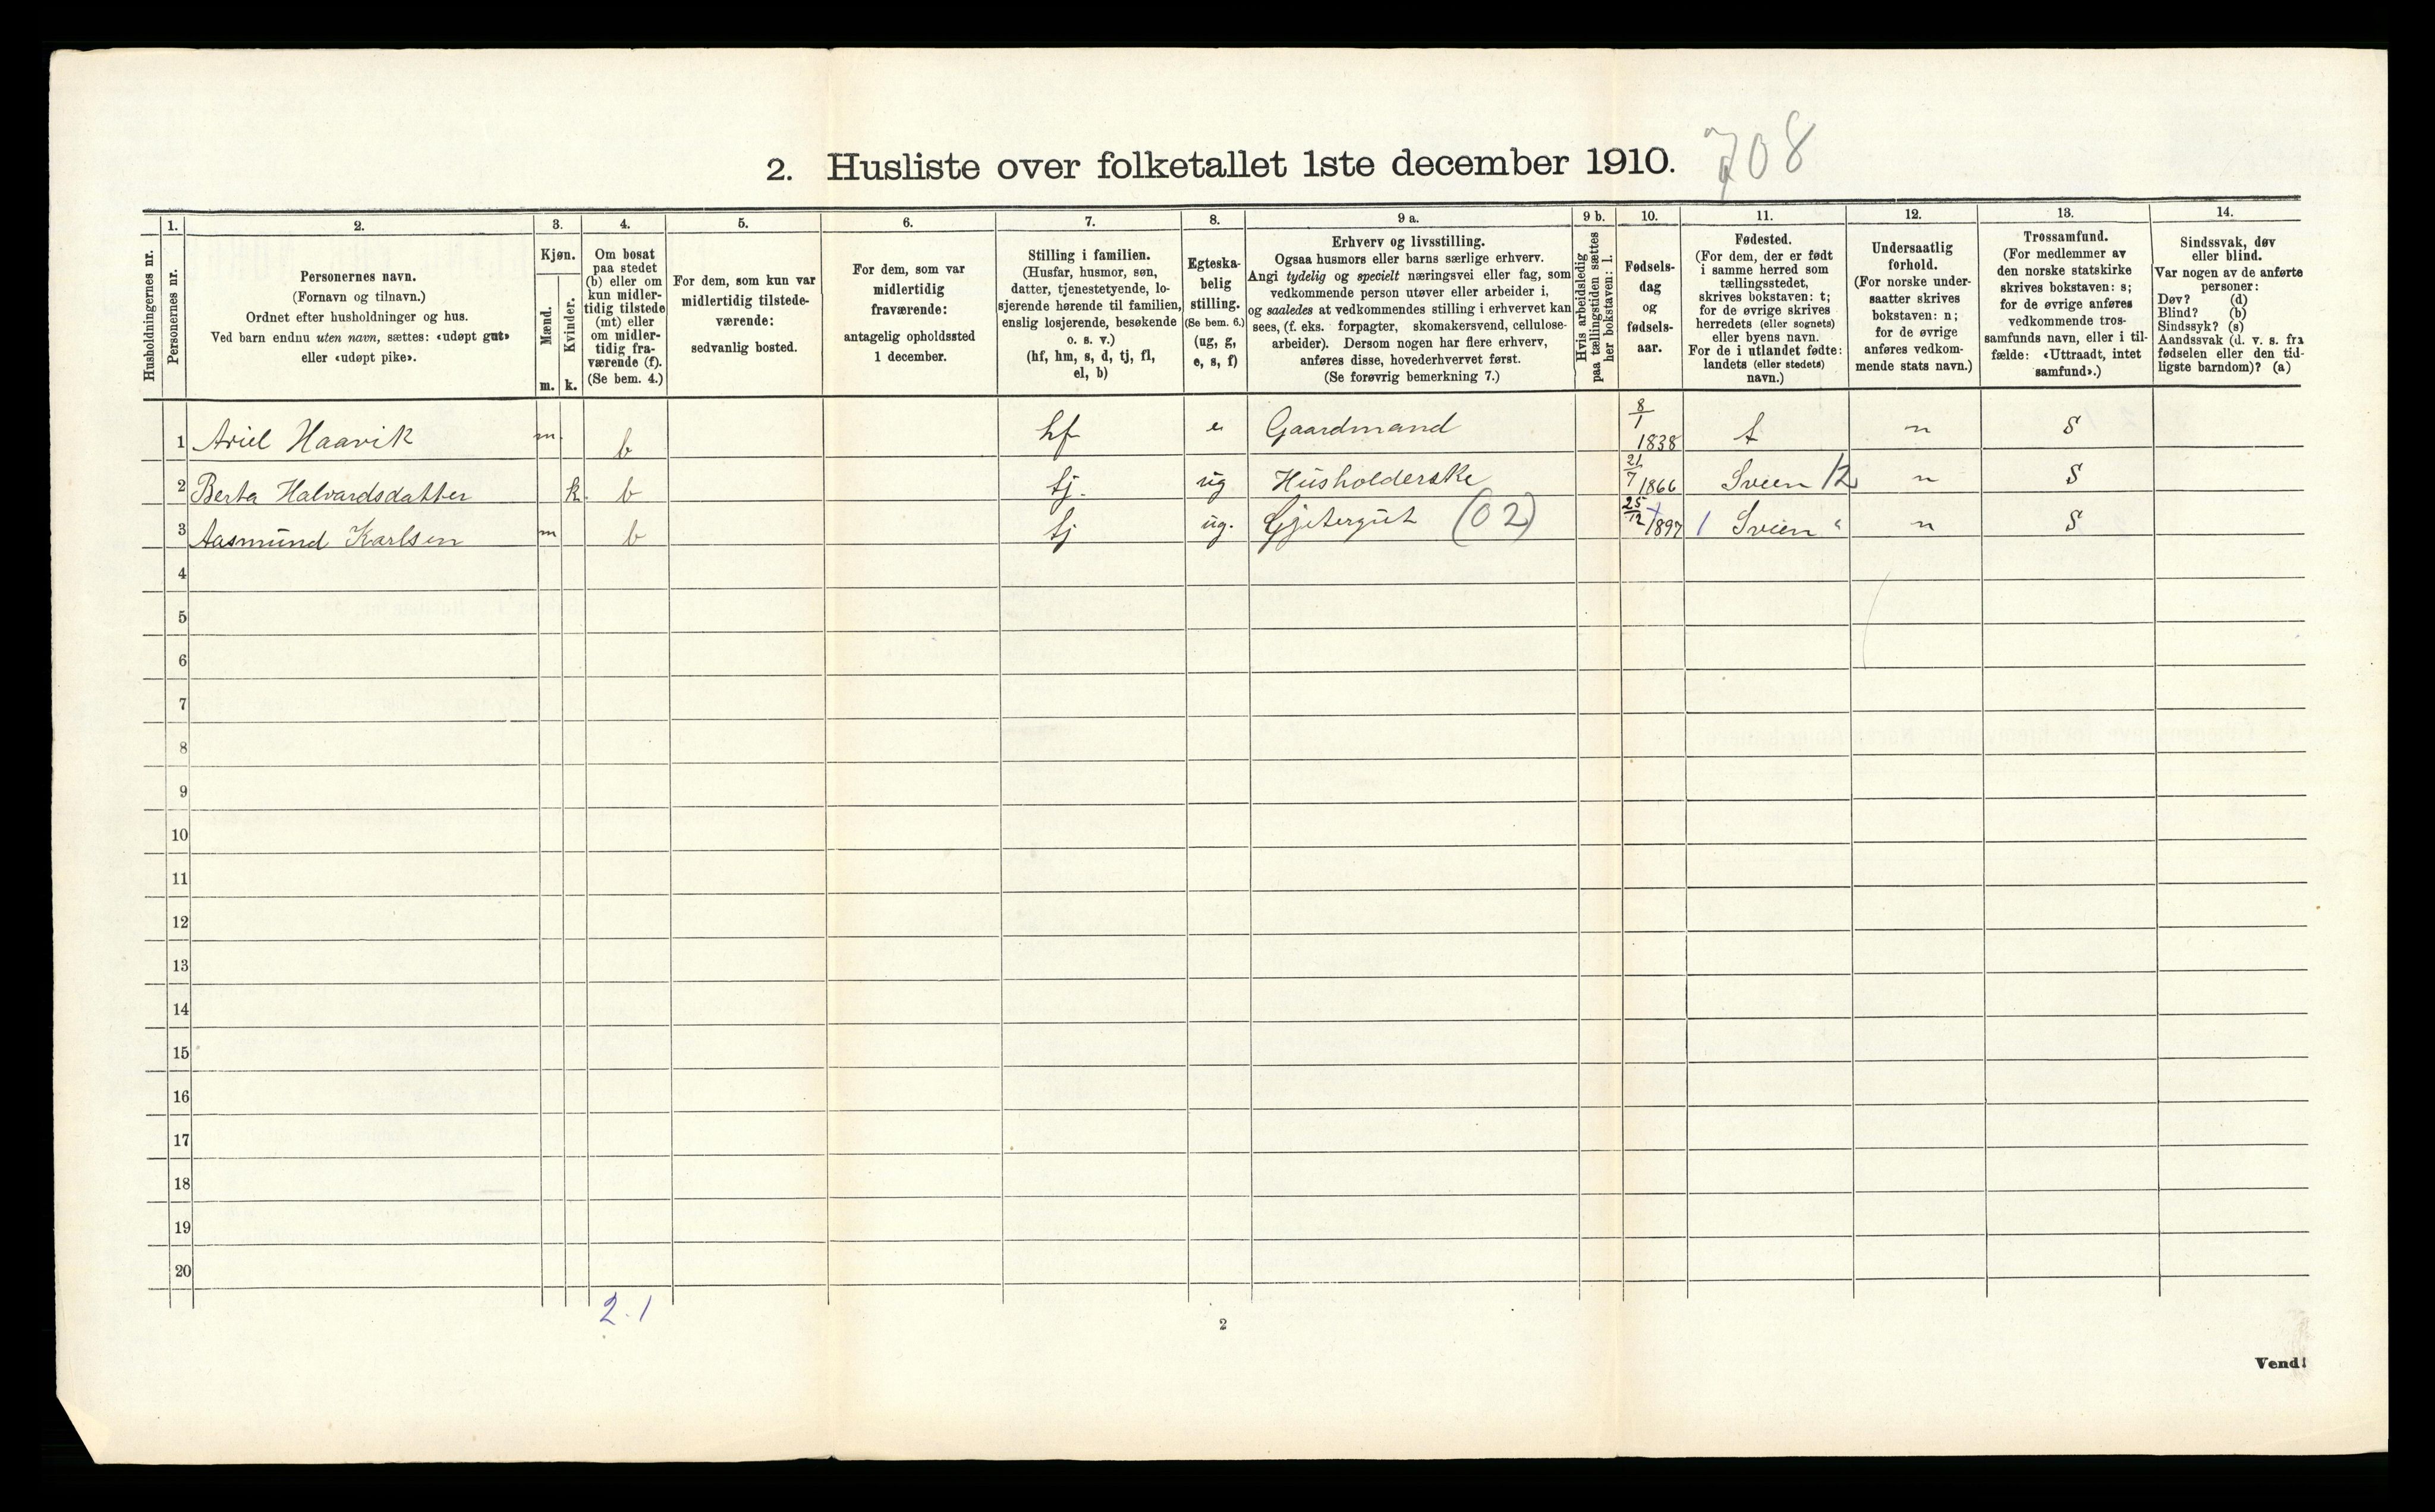 2. Husliste over folketallet 1ste december 1910. 708
Husholdningernes nr.
1.
Personernes nr.
2.
Personernes navn.
(Fornavn og tilnavn.)
Ordnet efter husholdninger og hus.
Ved barn endnu uten navn, sættes: «udøpt gut»
eller «udøpt pike».
3.
Kjøn.
Mænd.
Kvinder.
m. k.
4.
Om bosat
paa stedet
(b) eller om
kun midler-
tidig tilstede
(mt) eller
om midler-
tidig fra-
værende (f).
(Se bem. 4.)
5.
For dem, som kun var
midlertidig tilstede-
værende:
sedvanlig bosted.
6.
For dem, som var
midlertidig
fraværende:
antagelig opholdssted
1 december.
7.
Stilling i familien.
(Husfar, husmor, søn,
datter, tjenestetyende, lo-
sjerende hørende til familien,
enslig losjerende, besøkende
o. s. v.)
(hf, hm, s, d, tj, fl,
el, b)
8.
Egteska-
belig
stilling.
(Se bem. 6.)
(ug, g,
e, s, f)
9 a.
Erhverv og livsstilling.
Ogsaa husmors eller barns særlige erhverv.
Angi tydelig og specielt næringsvei eller fag, som
vedkommende person utøver eller arbeider i,
og saaledes at vedkommendes stilling i erhvervet kan
sees, (f. eks. forpagter, skomakersvend, cellulose-
arbeider). Dersom nogen har flere erhverv,
anføres disse, hovederhvervet først.
(Se forøvrig bemerkning 7.)
9 b.
Hvis arbeidsledig
paa tællingstiden sættes
her bokstaven: l.
10.
Fødsels-
dag
og
fødsels-
aar.
11.
Fødested.
(For dem, der er født
i samme herred som
tællingsstedet,
skrives bokstaven: t;
for de øvrige skrives
herredets (eller sognets)
eller byens navn.
For de i utlandet fødte:
landets (eller stedets)
navn.)
12.
Undersaatlig
forhold.
(For norske under-
saatter skrives
bokstaven: n;
for de øvrige
anføres vedkom-
mende stats navn.)
13.
Trossamfund.
(For medlemmer av
den norske statskirke
skrives bokstaven: s;
for de øvrige anføres
vedkommende tros-
samfunds navn, eller i til-
fælde: «Uttraadt, intet
samfund».)
14.
Sindssvak, døv
eller blind.
Var nogen av de anførte
personer:
Døv? (d)
Blind? (b)
Sindssyk? (s)
Aandssvak (d. v. s. fra
fødselen eller den tid-
ligste barndom)? (a)
1 Ariel Haavik m. b hf e Gaardmand 8/1 1838 t n S
2 Berta Halvardsdatter k. b tj. ug Husholderske 21/7 1866 Sveen 12 n S
3 Aasmund Karlsen m b tj ug. Gjetergut (02) 25/12 1897 Sveen " n S
4
5
6
7
8
9
10
11
12
13
14
15
16
17
18
19
20
2.1
2
Vend!